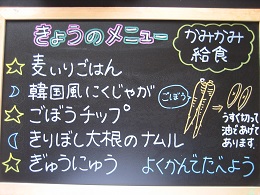 きょうのメニュー
かみかみ
給食
麦いりごはん
韓国風にくじゃが
ごぼうチップ
きりぼし大根のナムル
ぎゅうにゅう
ごぼう
うすく切って
油であげて
あります。
よくかんでたべよう